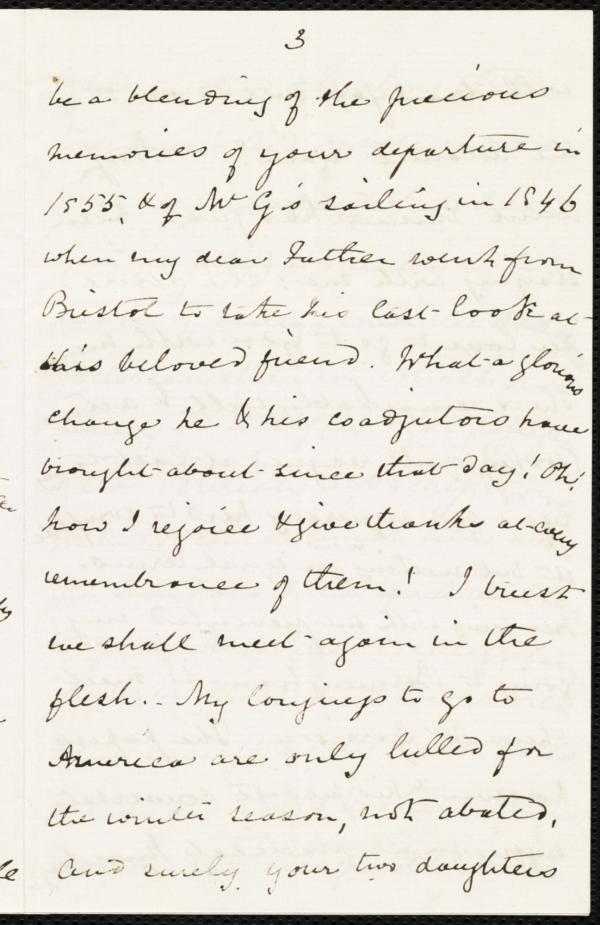 3
be a blending of the precious
memories of your departure in
1855, & of Mr G's sailing in 1846
when my dear Father went from
Bristol to take his last look at
his beloved friend. What a glorious
change he & his coadjutors have
brought about since that day! Oh!
how I rejoice & give thanks at every
remembrance of them! I trust
we shall meet again in the
flesh.. My longings to go to
America are only lulled for
the winter season, not abated,
and surely your two daughters